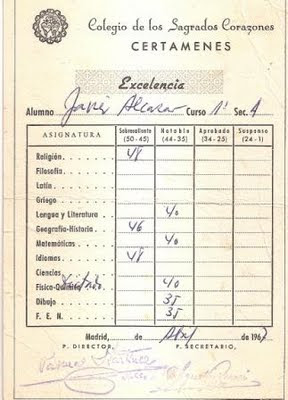 Colegio de los Sagrados Corazones
CERTAMENES
Excelencia
Alumno Javier Alcazar Curso 1º Sec. A
ASIGNATURA Sobresaliente (50-45) Notable (44-35) Aprobado (34-25) Suspenso (24-1)
Religión 48
Filosofía
Latín
Griego
Lengua y Literatura 40
Geografía-Historia 46
Matemáticas 40
Idiomas 48
Ciencias
Física-Química 40
Dibujo 35
F. E. N. 35
Madrid, de Abril 196
P. DIRECTOR, P. SECRETARIO,